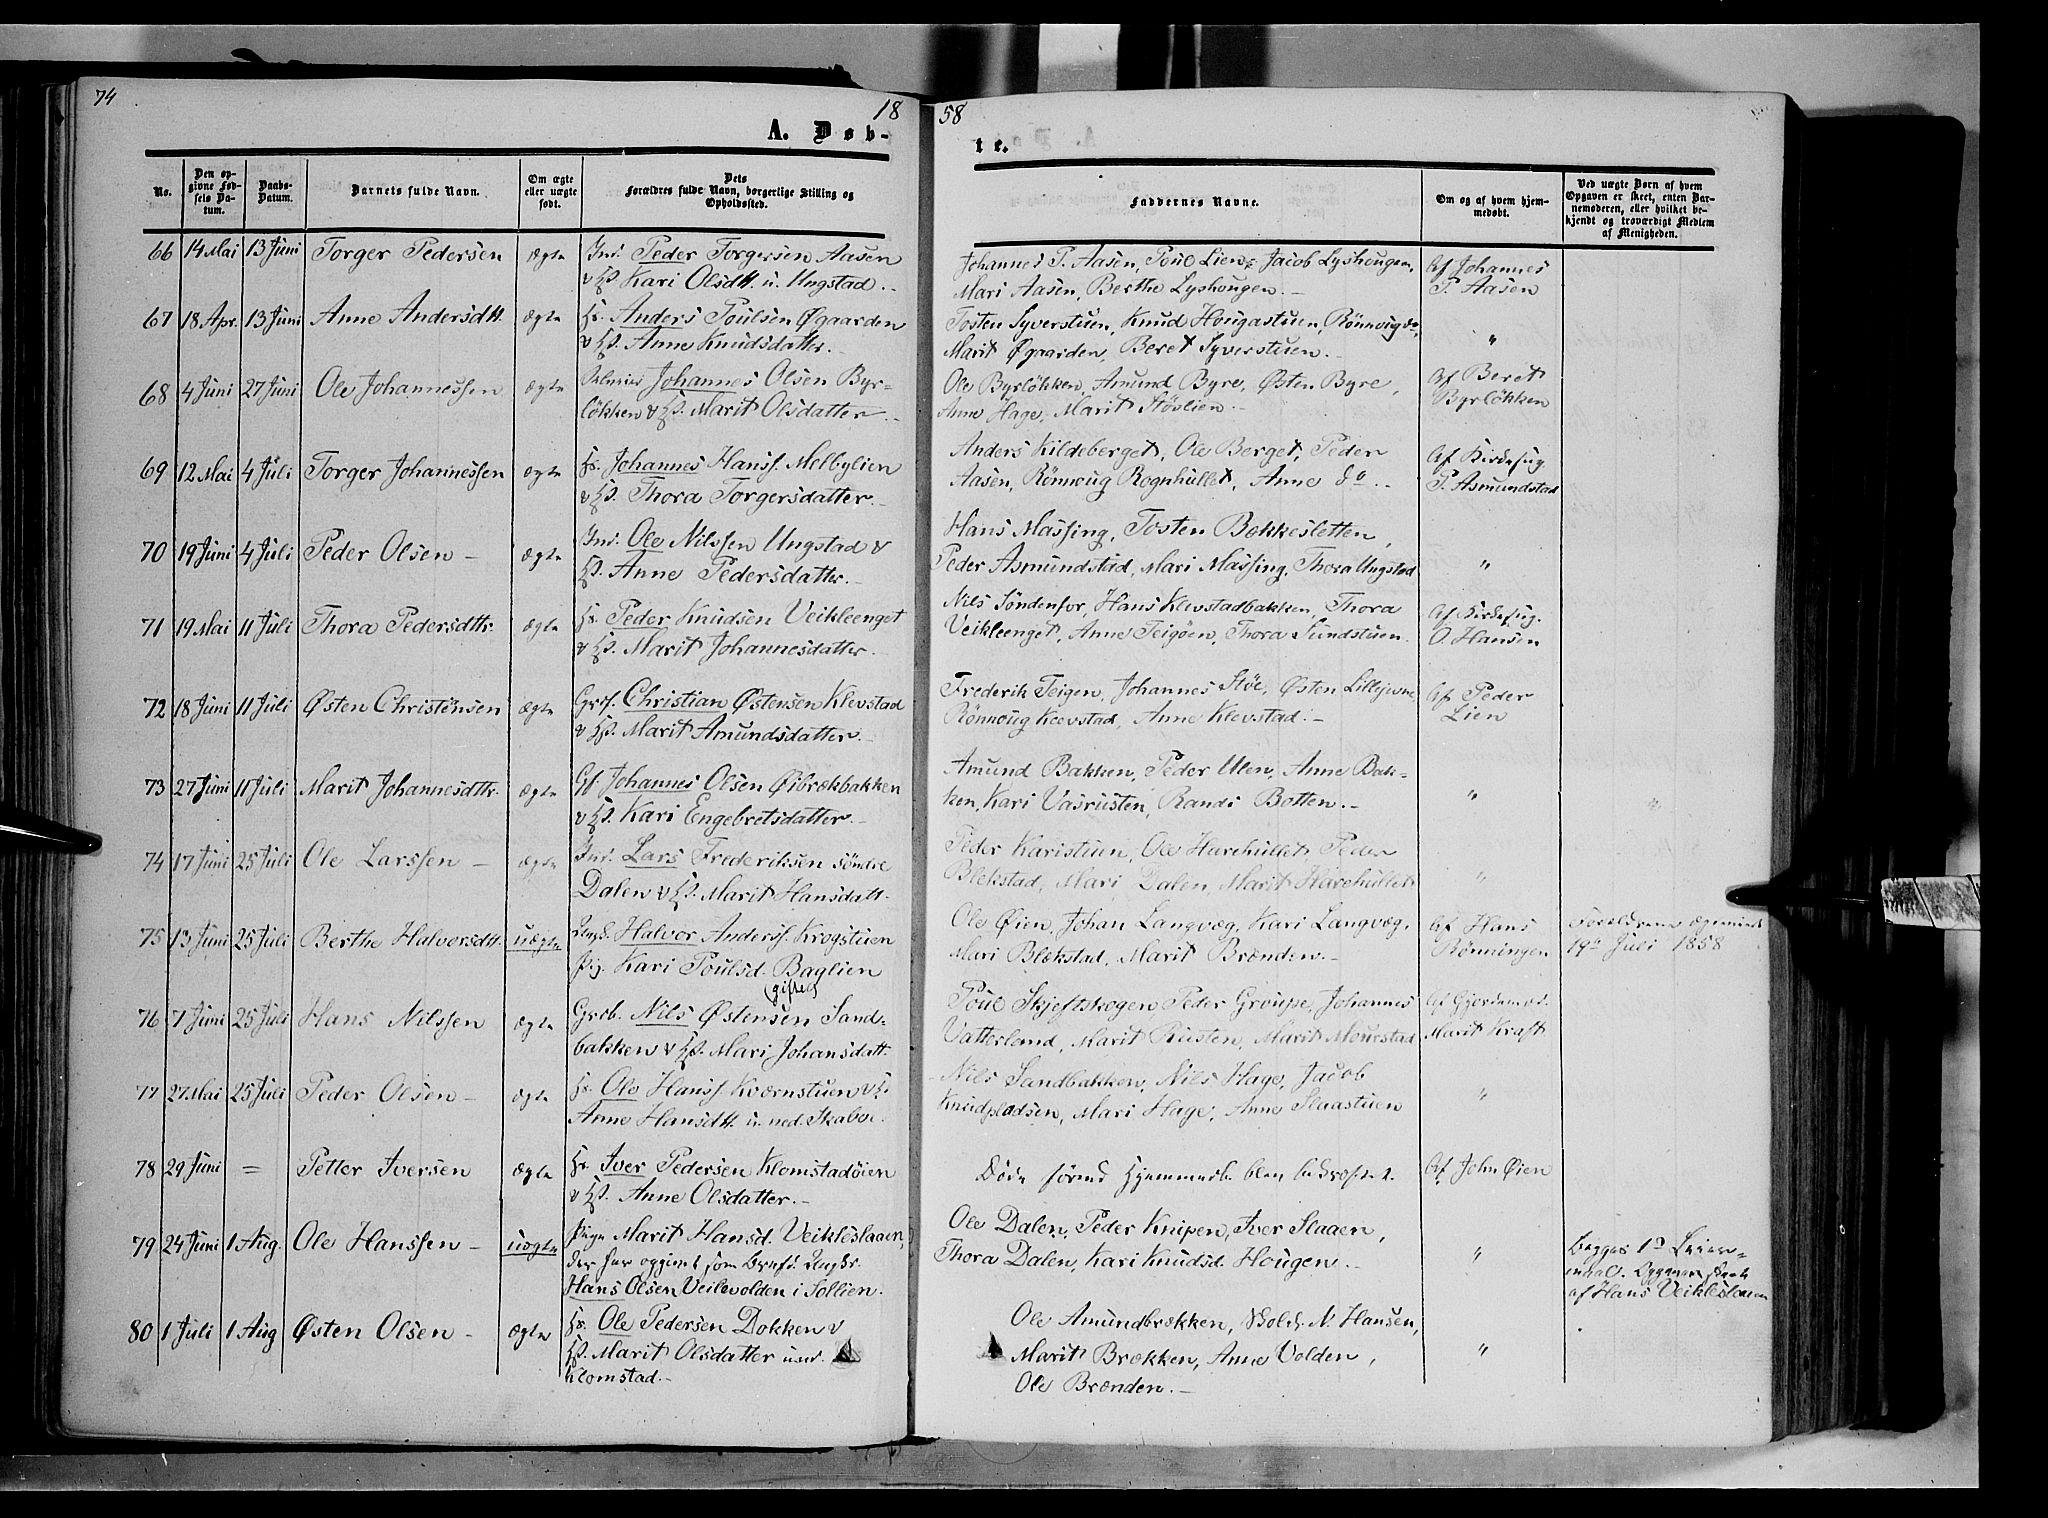 74
18
A. Døb-
No.
Den op-
givne Fød-
sels Da-
tum.
Daabs-
Datum.
Barnets fulde Navn.
Om ægte
eller uægte
født.
Dets
Forældres fulde Navn, borgerlige Stilling og
Opholdssted.
66 14 Mai 13 Juni Torger Pedersen ægte Ind. Peder Torgersen Aasen
v Hs. Kari Olsdtt. u. Ungstad.
67 18 Apr. 13 Juni Anne Andersdtt. ægte Hs. Anders Poulsen Øgaarden
v Hs. Anne Knudsdatter.
68 4 Juni 27 Juni Ole Johannessen ægte Johannes Olsen Byr-
løkken v Hs. Marit Olsdatter
69 12 Mai 4 Juli Torger Johannessen ægte Hs. Johannes Hanss. Melbylien
v Hs. Thora Torgersdatter.
70 19 Juni 4 Juli Peder Olsen – ægte Ind. Ole Nilssen Ungstad v
Hs. Anne Pedersdatter.
71 19 Mai 11 Juli Thora Pedersdttr. ægte Hs. Peder Knudsen Veikleenget
v Hs. Marit Johannesdatter.
72 18 Juni 11 Juli Østen Christensen ægte Grf. Christian Østensen Klevstad
v Hs. Marit Amundsdatter.
73 27 Juni 11 Juli Marit Johannesdttr. ægte Gf. Johannes Olsen Øibrækbakken
v Hs. Kari Engebretsdatter.
74 17 Juni 25 Juli Ole Larssen – ægte Ind. Lars Frederiksen søndre
Dalen v Hs. Marit Hansdatt.
75 13 Juni 25 Juli Berthe Halvorsdtt. uægte Ungk. Halvor Anderss. Krogstuen
Pig. Kari Poulsd. Baglien
(gifte)
76 7 Juni 25 Juli Hans Nilssen ægte Grb. Nils Østensen Sand-
bakken v Hs. Mari Johansdatt.
77 27 Mai 25 Juli Peder Olsen – ægte Hs. Ole Hanss. Kværnstuen v H.
Anne Hansdtt. u. ned. Skaboe.
78 29 Juni = Petter Iversen ægte Hs. Iver Pedersen Klomstadøien
v Hs. Anne Olsdatter.
79 24 Juni 1 Aug. Ole Hanssen – uægte Pige Marit Hansd. Veikleslaaen,
der har opgivet som Barnef. Ungkr.
Hans Olsen Veilevolden i Sollien.
80 1 Juli 1 Aug Østen Olsen – ægte Hs. Ole Pedersen Dokken v
Hs. Marit Olsdatter
Klomstad.
58
te.
Faddernes Navne.
Om og af hvem hjem-
medøbt.
Ved uægte Børn af hvem
Opgaven er skeet, enten Bar-
nemoderen, eller hvilket be-
kjendt og troværdigt Medlem
af Menigheden.
Johannes P. Aasen, Poul Lien, Jacob Lyshougen, Af Johannes
Mari Aasen, Berthe Lyshougen. P. Aasen
Tosten Syverstuen, Knud Hougastuen, Rønnoug do,
Marit Øgaarden, Beret Syverstuen. "
Ole Byrløkken, Amund Byre, Østen Byre, Af Beret
Anne Hage, Marit Støslien. Byrløkken
Anders Kildeberget, Ole Berget, Peder Af Kirkesng.
Aasen, Rønnoug Rognhullet, Anne do. P. Asmundstad
Hans Massing, Tosten Bækkesletten,
Peder Asmundstad, Mari Massing, Thora Ungstad "
Nils Søndenfor, Hans Klevstadbakken, Thora Af Kirkesng.
Veikleenget, Anne Teigøen, Thora Sundstuen. O. Hansen
Frederik Teigen, Johannes Støe, Østen Lillejevne, Af Peder
Rønnoug Klevstad, Anne Klevstad. Lien
Amund Bakken, Peder Ulen, Anne Bak-
ken, Kari Vasrusten, Randi Botten. " "
Peder Karistuen, Ole Harehullet, Peder
Blekstad, Mari Dalen, Marit Harehullet "
Ole Øien, Johan Langvæg, Kari Langvæg, Af Hans Forældrene ægteviet
Mari Blekstad, Marit Brænden. Rønningen 19de Juli 1858
Poul Skjeftskogen, Peder Groupe, Johannes Af Gjordemod.
Vatterland, Marit Rusten, Marit Mourstad Marit Kraft
Nils Sandbakken, Nils Hage, Jacob
Knudpladsen, Mari Hage, Anne Slaastuen "
Døde førend Hjemmed. blev bekræftet. Af John Øien
Ole Dalen, Peder Knipen, Iver Slaaen,
Thora Dalen, Kari Knudsd. Hougen. " Begges 1ste Leier-
maal. Opgaven skeet
af Hans Veikleslaaen
Ole Amundbrækken, N. Hansen,
Marit Brækken, Anne Volden, "
Ole Brænden.